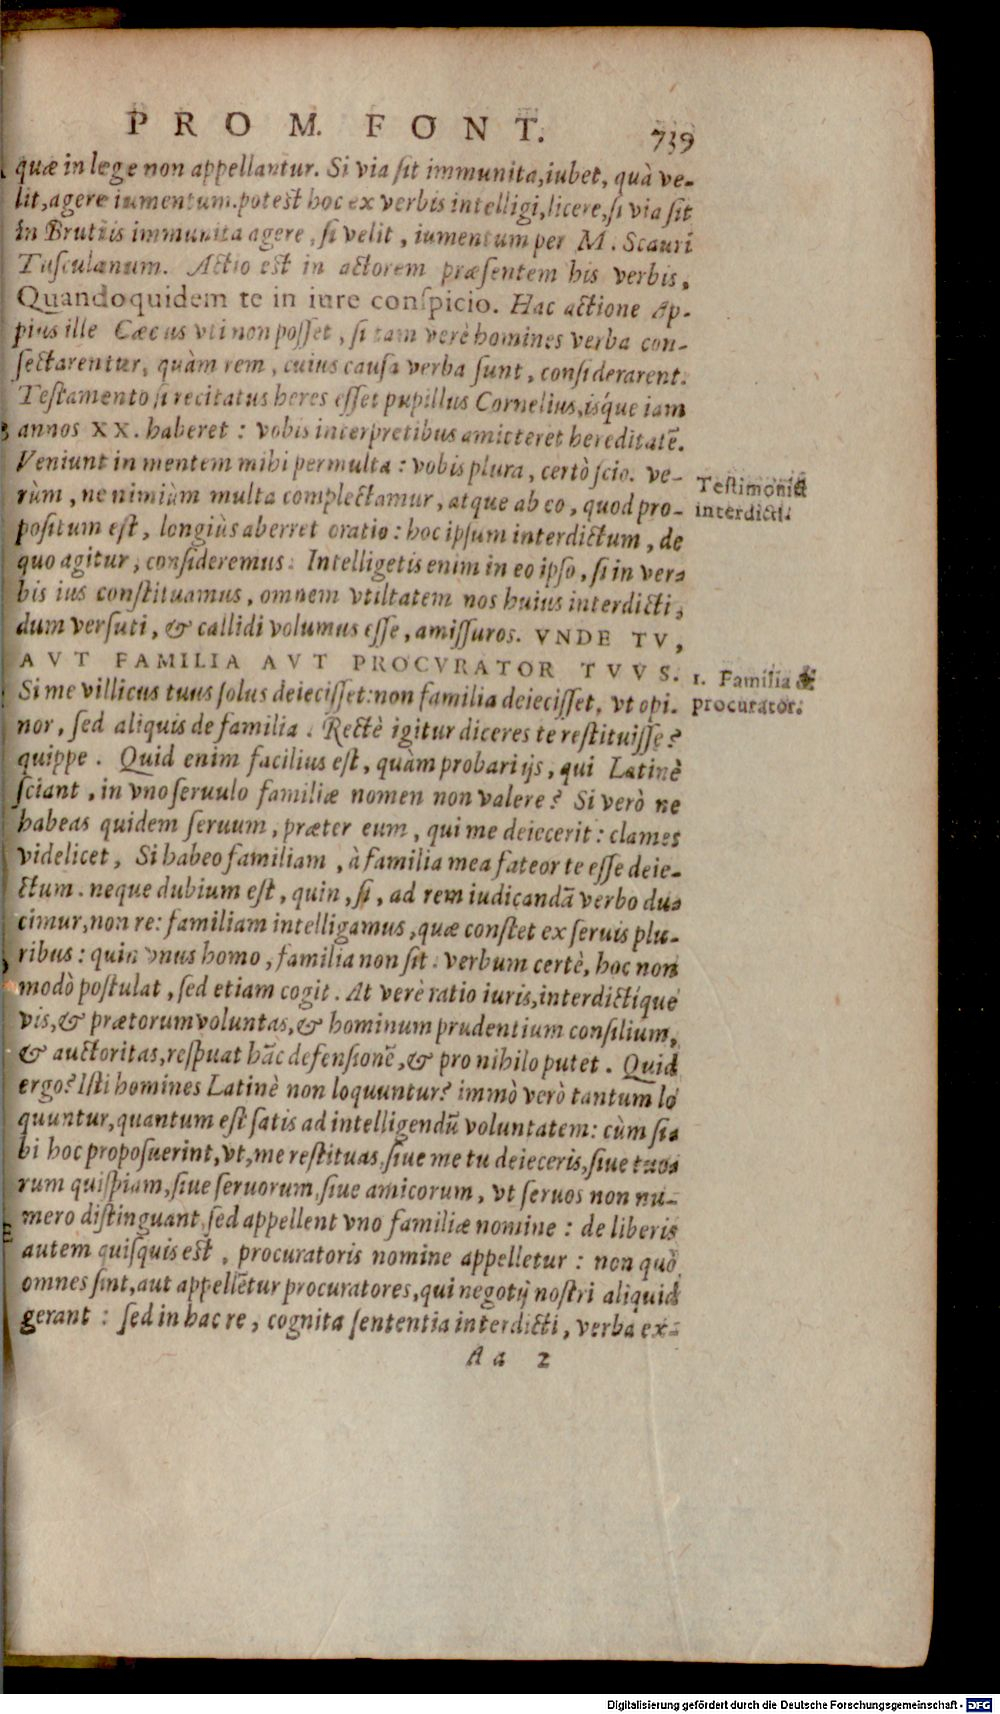 PROM. FONT. 739
quæ in lege non appellantur. Si via sit immunita, iubet, quà ve-
lit, agere iumentum. potest hoc ex verbis intelligi, licere, si via sit
in Brutiis immunita agere, si velit, iumentum per M. Scauri
Tusculanum. Actio est in actorem præsentem his verbis,
Quandoquidem te in iure conspicio. Hac actione Ap-
pius ille Cæcus vti non posset, si tam verè homines verba con-
sectarentur, quàm rem, cuius causa verba sunt, considerarent.
Testamento si recitatus heres esset pupillus Cornelius, ísque iam
annos XX. haberet: vobis interpretibus amitteret hereditatē.
Veniunt in mentem mihi permulta: vobis plura, certò scio. ve-
rùm, ne nimiùm multa complectamur, atque ab eo, quod pro-
positum est, longiùs aberret oratio: hoc ipsum interdictum, de
quo agitur, consideremus. Intelligetis enim in eo ipso, si in ver-
bis ius constituamus, omnem vtiltatem nos huius interdicti,
dum versuti, & callidi volumus esse, amissuros. VNDE TV,
AVT FAMILIA AVT PROCVRATOR TVVS.
Si me villicus tuus solus deiecisset: non familia deiecisset, vt opi-
nor, sed aliquis de familia. Rectè igitur diceres te restituisse?
quippe. Quid enim facilius est, quàm probari ijs, qui Latinè
sciant, in vno seruulo familiæ nomen non valere? Si verò ne
habeas quidem seruum, præter eum, qui me deiecerit: clames
videlicet, Si habeo familiam, à familia mea fateor te esse deie-
ctum. neque dubium est, quin, si, ad rem iudicandā verbo du-
cimur, non re: familiam intelligamus, quæ constet ex seruis plu-
ribus: quin vnus homo, familia non sit: verbum certè, hoc non
modò postulat, sed etiam cogit. At verè ratio iuris, interdictíque
vis, & prætorum voluntas, & hominum prudentium consilium,
& auctoritas, respuat hāc defensionē, & pro nihilo putet. Quid
ergo? Isti homines Latinè non loquuntur? immò verò tantum lo
quuntur, quantum est satis ad intelligendū voluntatem: cùm si-
bi hoc proposuerint, vt, me restituas, siue me tu deieceris, siue tuo-
rum quispiam, siue seruorum, siue amicorum, vt seruos non nu-
mero distinguant, sed appellent vno familiæ nomine: de liberis
autem quisquis est, procuratoris nomine appelletur: non quò
omnes sint, aut appellētur procuratores, qui negotij nostri aliquid
gerant: sed in hac re, cognita sententia interdicti, verba ex-
Aa 2
Testimonia
interdicti.
1. Familia &
procurator.
Digitalisierung gefördert durch die Deutsche Forschungsgemeinschaft - DFG